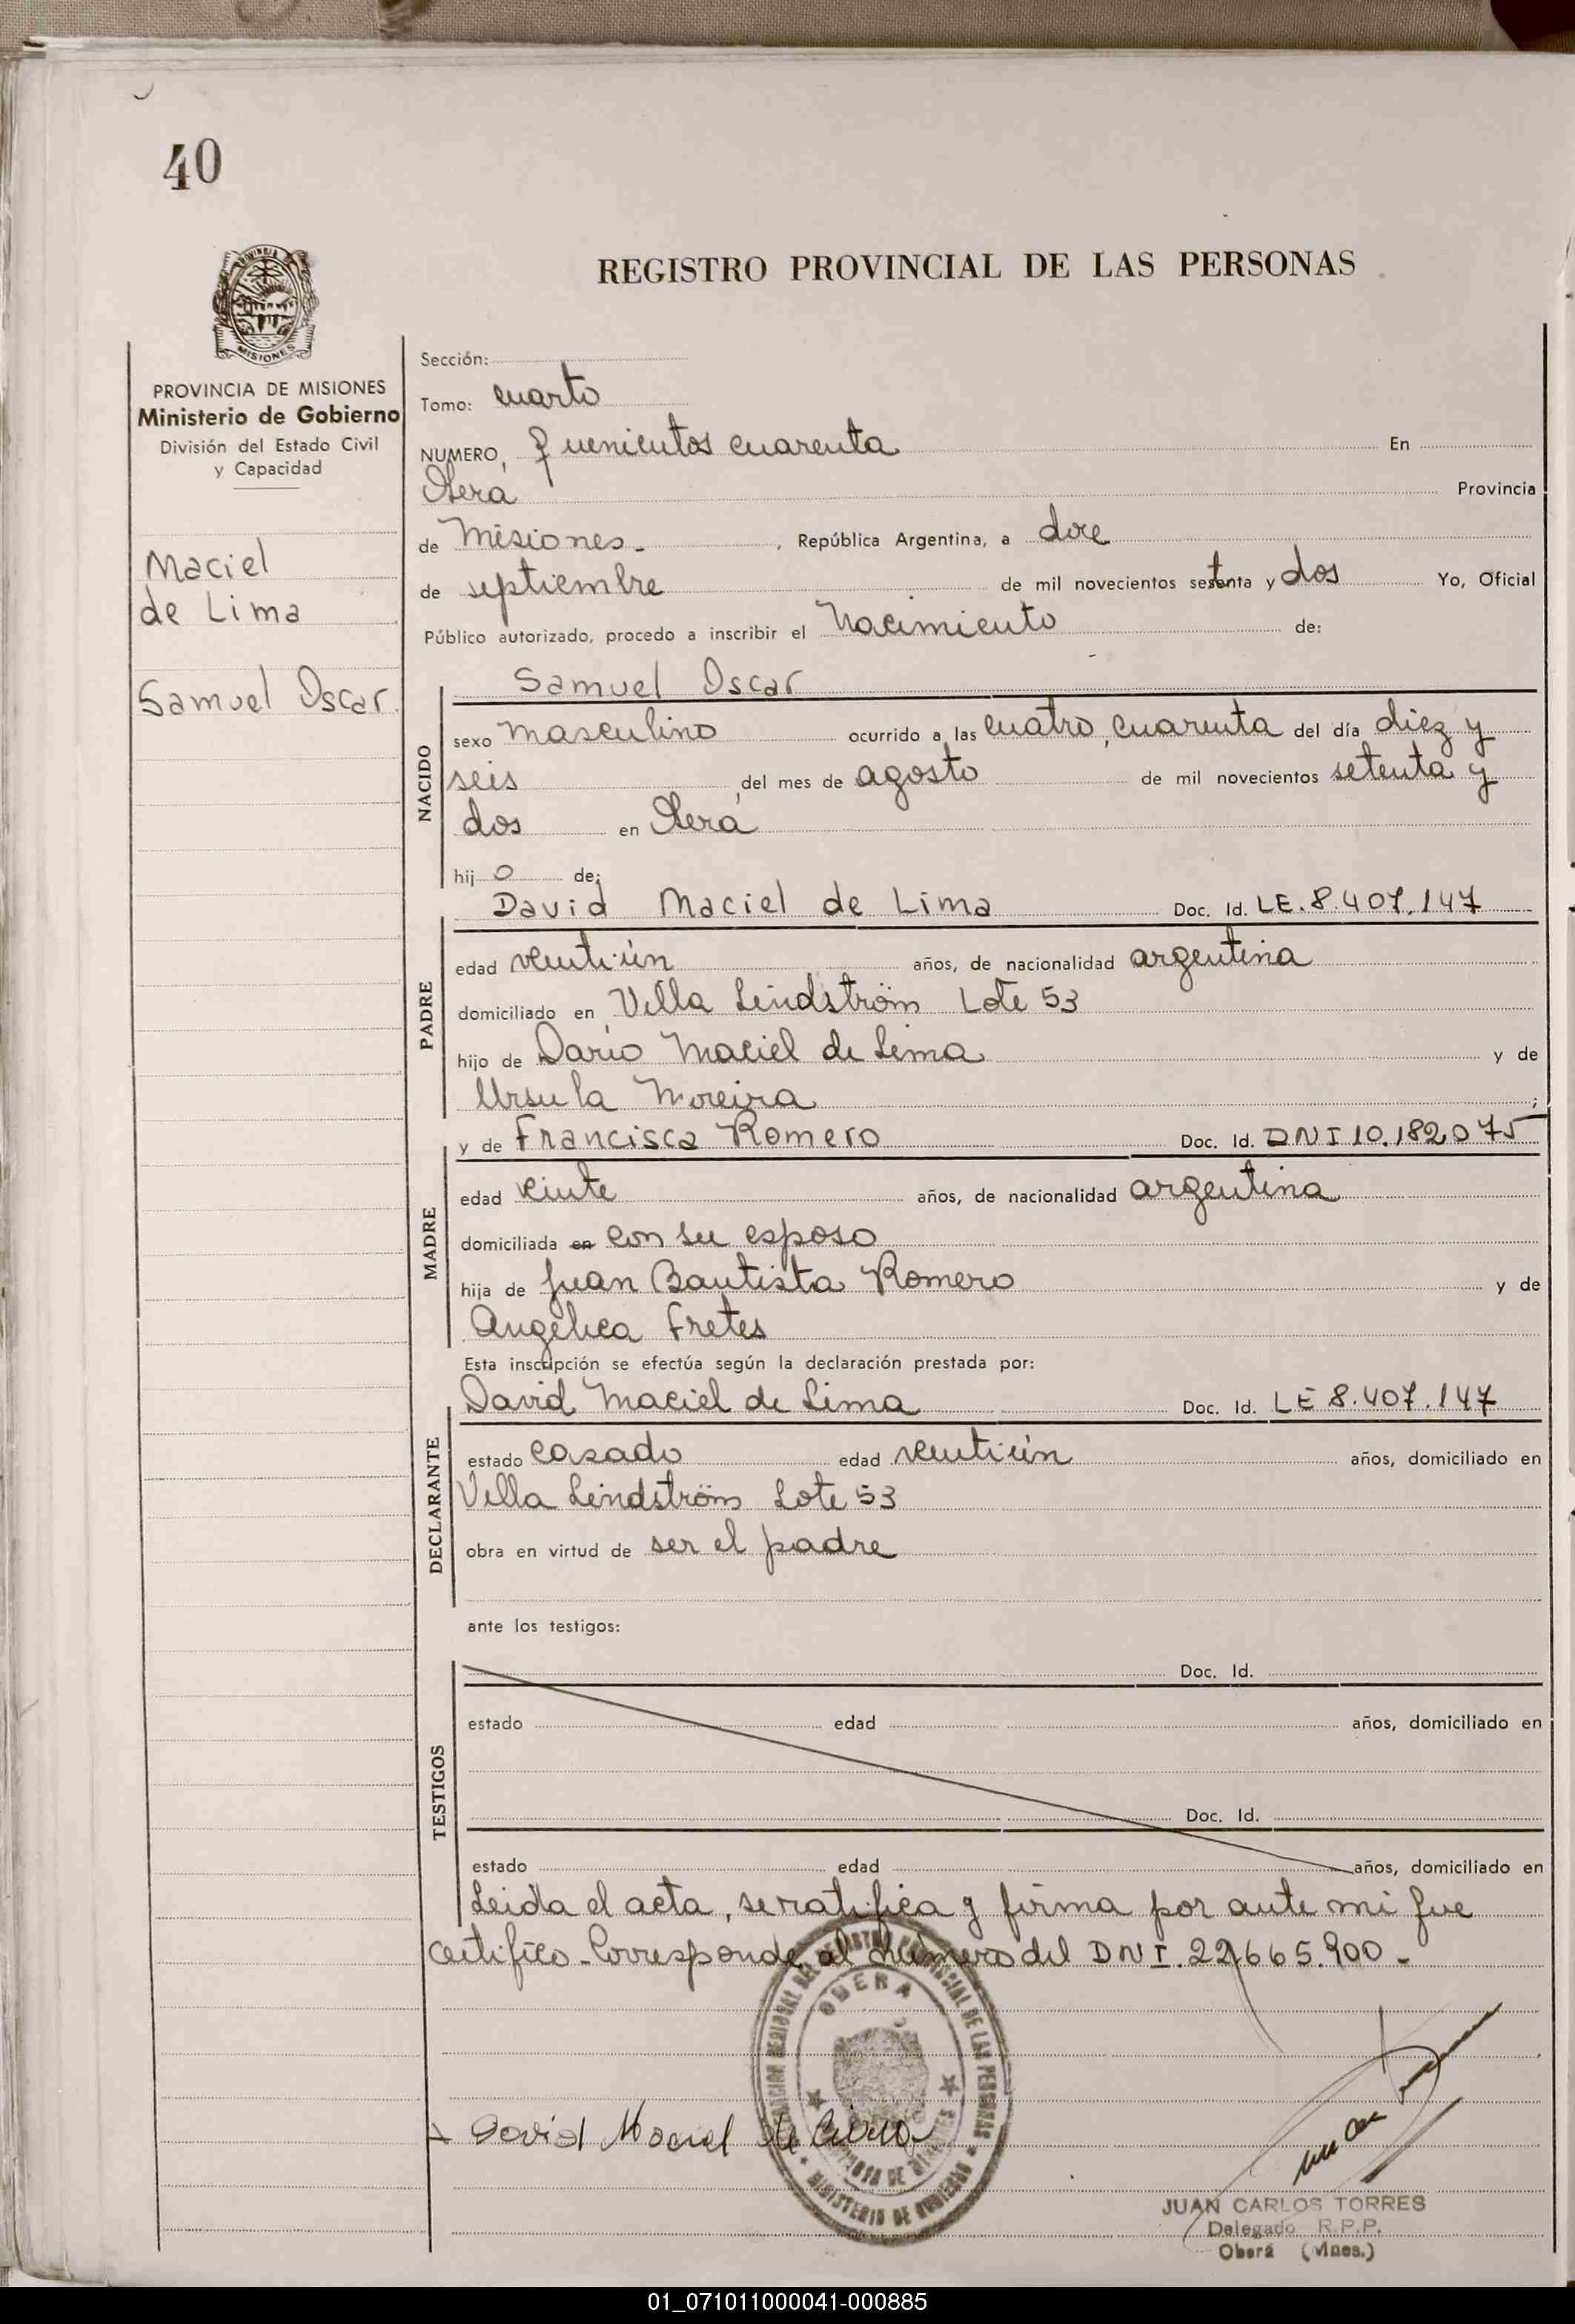 40
REGISTRO PROVINCIAL DE LAS PERSONAS
MISIONES
PROVINCIA DE MISIONES
Ministerio de Gobierno
División del Estado Civil
y Capacidad
Maciel
de Lima
Samuel Oscar
Sección:
Tomo: cuarto
NUMERO, quenientos cuarenta En
Oberá Provincia
de Misiones - , República Argentina, a doce
de septiembre de mil novecientos setenta y dos Yo, Oficial
Público autorizado, procedo a inscribir el Nacimiento de:
Samuel Oscar
NACIDO
sexo masculino ocurrido a las cuatro, cuarenta del día diez y
seis del mes de agosto de mil novecientos setenta y
dos en Oberá
hijo de:
David Maciel de Lima Doc. Id. LE. 8.407.147
PADRE
edad veintiún años, de nacionalidad argentina
domiciliado en Villa Lindström Lote 53
hijo de Dario Maciel de Lima y de
Ursula Moreira ;
y de Francisca Romero Doc. Id. DNI 10.182075
MADRE
edad veinte años, de nacionalidad argentina
domiciliada en con su esposo
hija de Juan Bautista Romero y de
Angélica Fretes
Esta inscripción se efectúa según la declaración prestada por:
David Maciel de Lima Doc. Id. LE 8.407.147
DECLARANTE
estado casado edad veintiún años, domiciliado en
Villa Lindström Lote 53
obra en virtud de ser el padre
ante los testigos:
TESTIGOS
Doc. Id.
estado edad años, domiciliado en
Doc. Id.
estado edad años, domiciliado en
Leida el acta, se ratifica y firma por ante mi que
certifico - Corresponde al número del DNI. 22665.900 -
OBERA
MINISTERIO DE GOBIERNO
David Maciel de Lima
JUAN CARLOS TORRES
Delegado R.P.P.
Oberá (Mnes.)
01_071011000041-000885